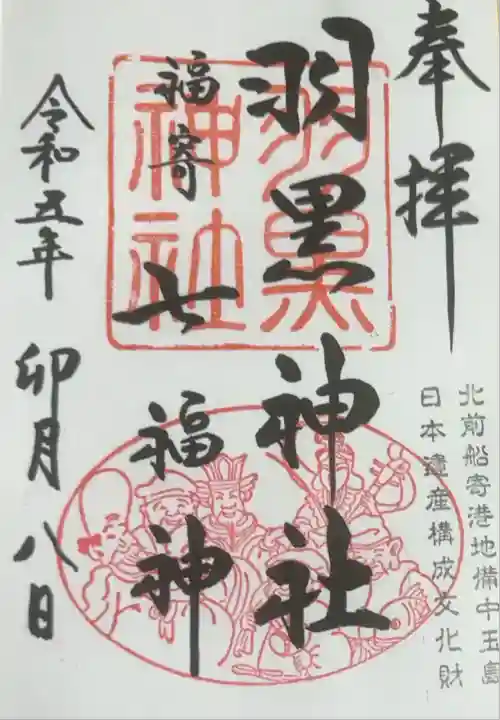 奉拝
北前船寄港地備中玉島
日本遺産構成文化財
羽黒神社
羽黒
神社
福寄七福神
令和五年卯月八日